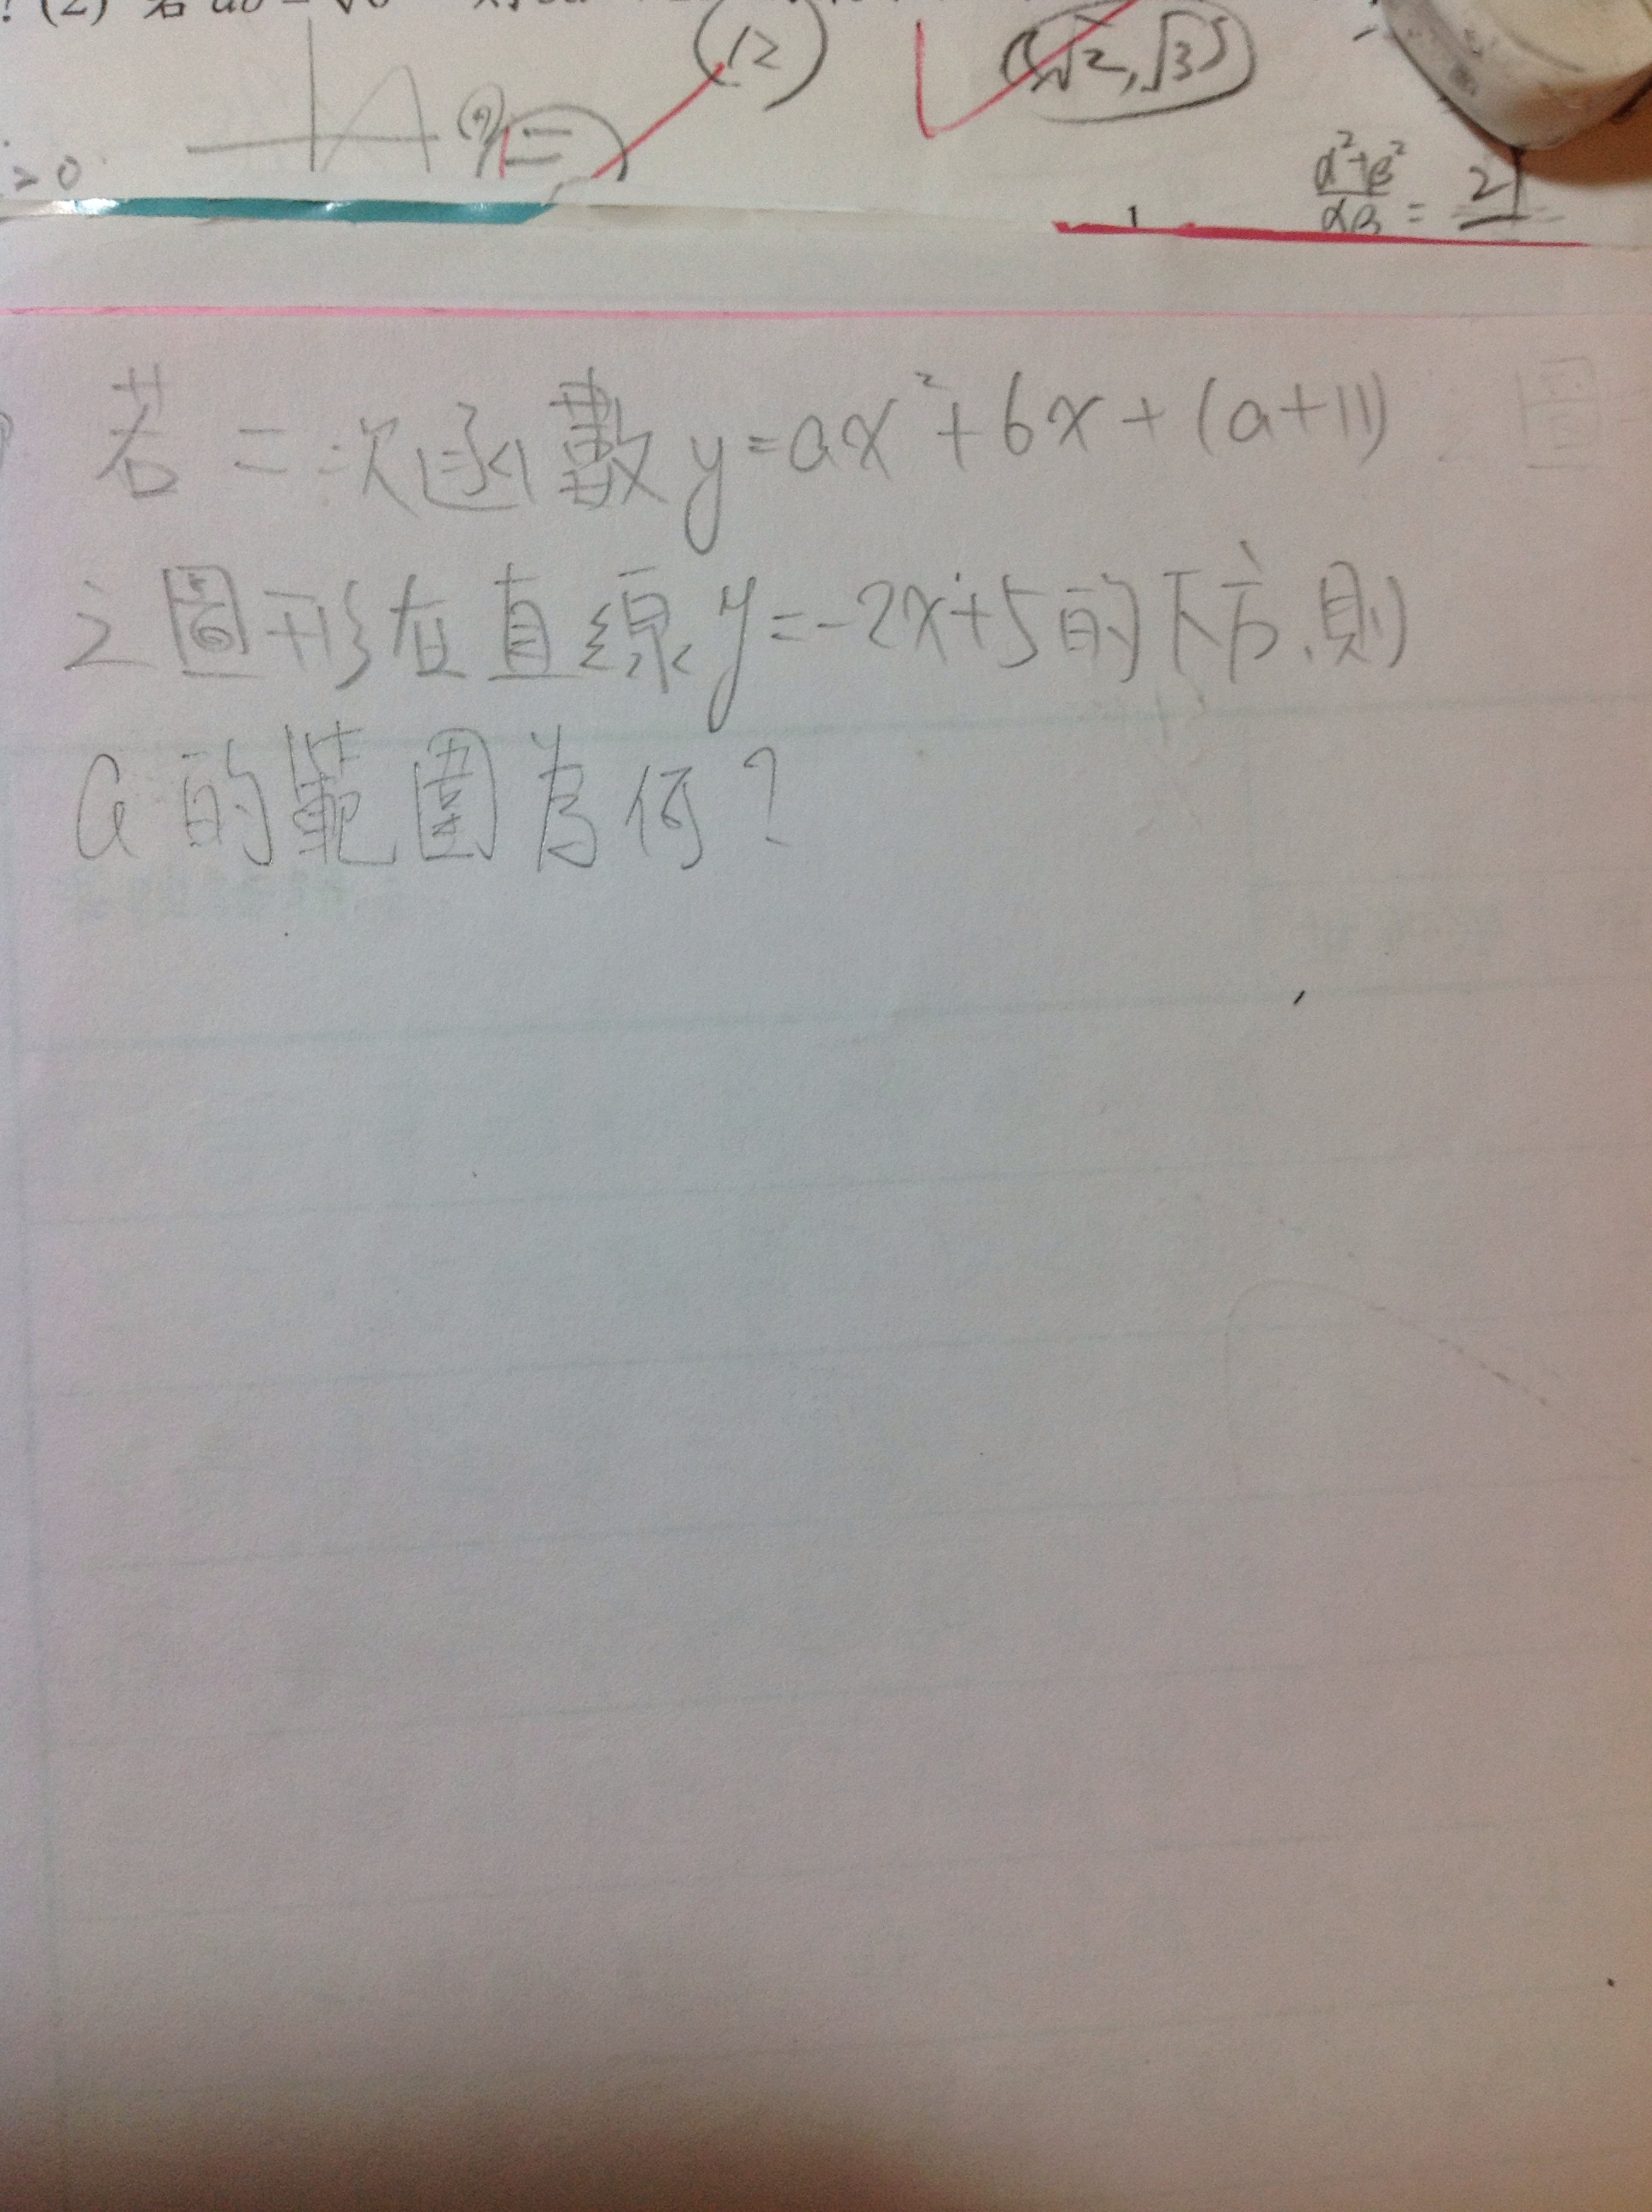 (2) 若
12
(√2,√3)
>0
α²+β²/αβ = 21
若二次函數y=ax²+6x+(a+11)
之圖形在直線y=-2x+5的下方,則
a的範圍為何?